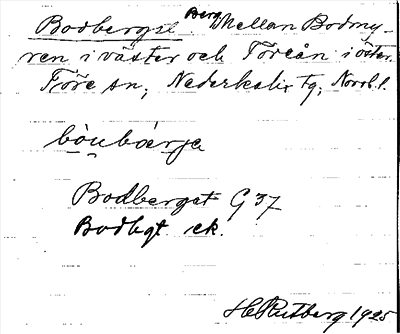 Bodberget. Berg mellan Bodmy-
ren i väster och Töreån i öster.
Töre sn; Nederkalix tg; Norrb. l.
bòu̯bær̀ja
Bodberget G 37
Bodbgt ek.
H Rutberg 1925